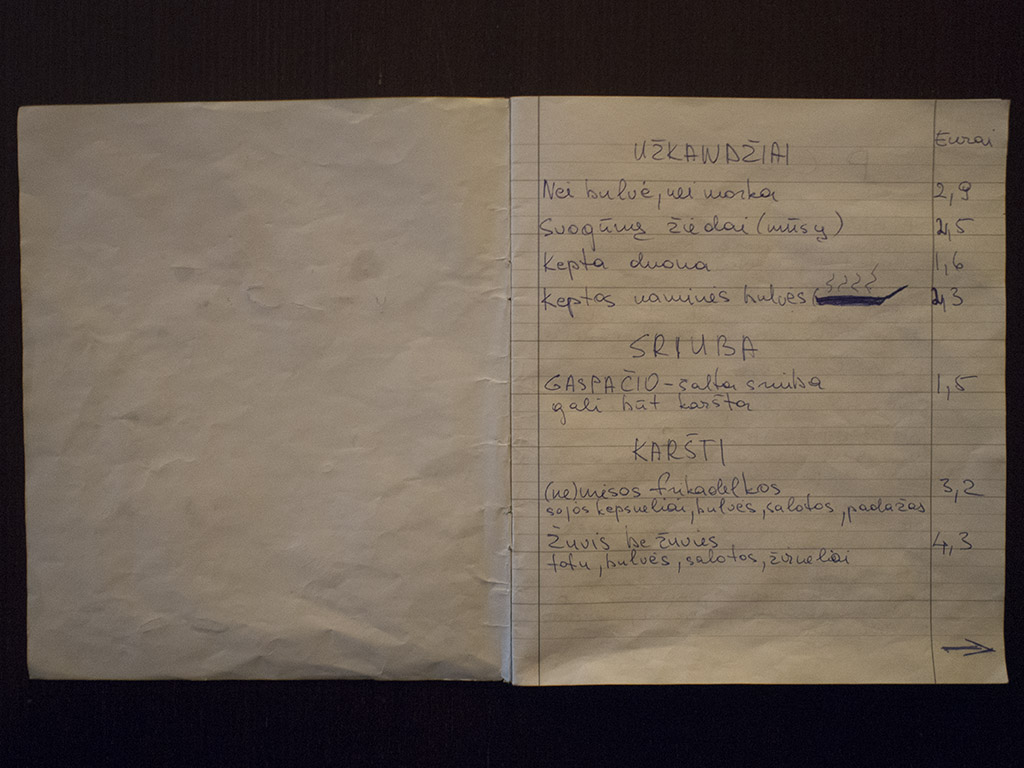 Eurai
UŽKANDŽIAI
Nei bulvė, nei morka 2,9
Svogūnų žiedai (mūsų) 2,5
Kepta duona 1,6
Keptos naminės bulvės 2,3
SRIUBA
GASPAČIO - šalta sriuba 1,5
gali būt karšta
KARŠTI
(ne)mėsos frikadelkos 3,2
sojos kepsneliai, bulvės, salotos, padažas
Žuvis be žuvies 4,3
tofu, bulvės, salotos, žirneliai